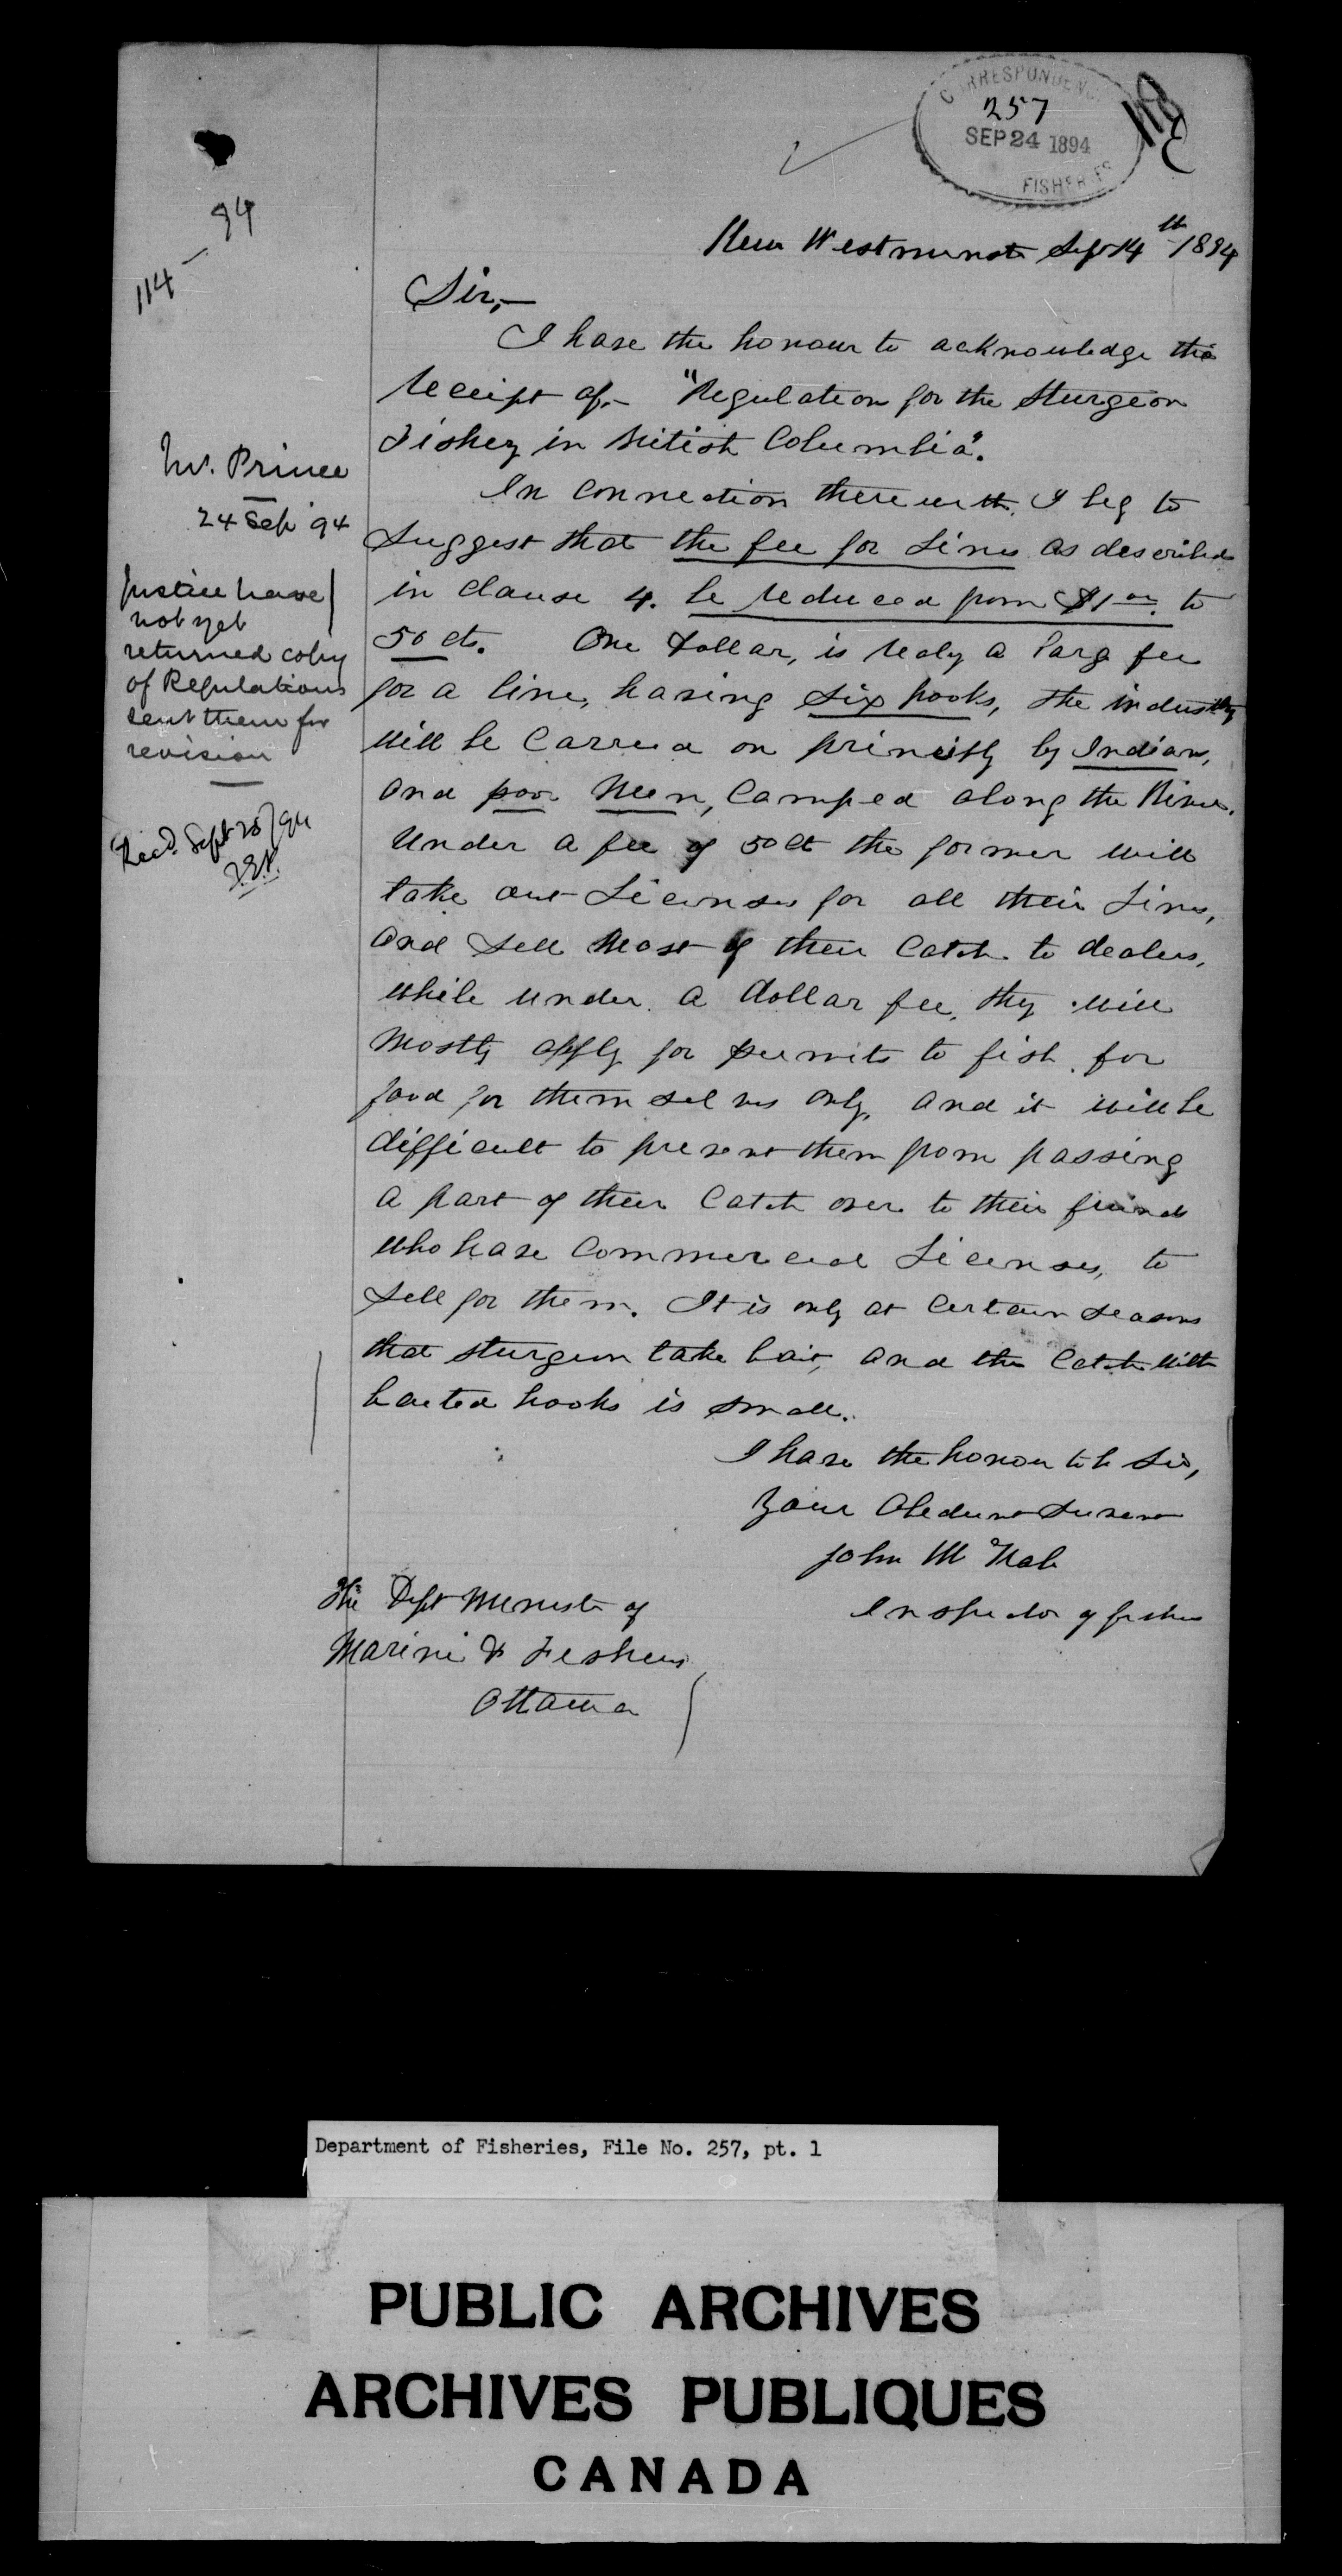 CORRESPONDENCE
257
SEP 24 1894
FISHERIES
94
114 —
New Westminster Sept 14th 1894
Sir,—
I have the honour to acknowledge the
receipt of.— "Regulation for the Sturgeon
Fishery in British Columbia".
In connection therewith I beg to
suggest that the fee for Lines as described
in clause 4. be reduced from $1.00 to
50 cts. One Dollar, is realy a large fee
for a line, having six hooks, the industry
will be carried on principly by Indians,
and poor Men, Camped along the River.
Under a fee of 50 ct the former will
take out Licenses for all their Lines,
and Sell Most of their Catch to dealers,
while under a dollar fee, they will
Mostly apply for permits to fish for
food for themselves only, and it will be
difficult to prevent them from passing
a part of their Catch over to their friends
who have Commercial Licenses, to
Sell for them. It is only at Certain seasons
that sturgeon take bait, and the Catch with
baited hooks is small.
I have the honour to be Sir,
Your Obedient Servant
John McNab
Inspector of fisheries
The Dept Minister of
Marine & Fisheries
Ottawa
Mr. Prince
24 Sep '94
Justice have
not yet
returned copy
of Regulations
sent them for
revision
Recd. Sept 25/94
Department of Fisheries, File No. 257, pt. 1
PUBLIC ARCHIVES
ARCHIVES PUBLIQUES
CANADA